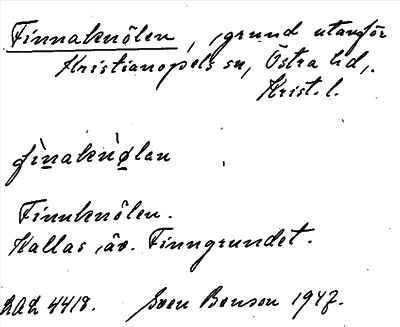 Finnaknölen, grund utanför
Kristianopels sn, Östra hd,
Krist. l.
fìnaknø̀lan
Finnknölen.
Kallas äv. Finngrundet.
LAL 4418. Sven Benson 1947.